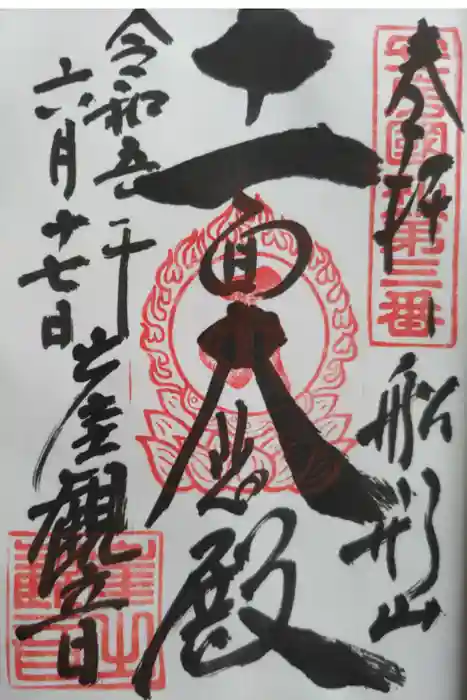 奉拝
安房國札第三番
船形山
十一面大悲殿
令和五年
六月十七日
崖觀音